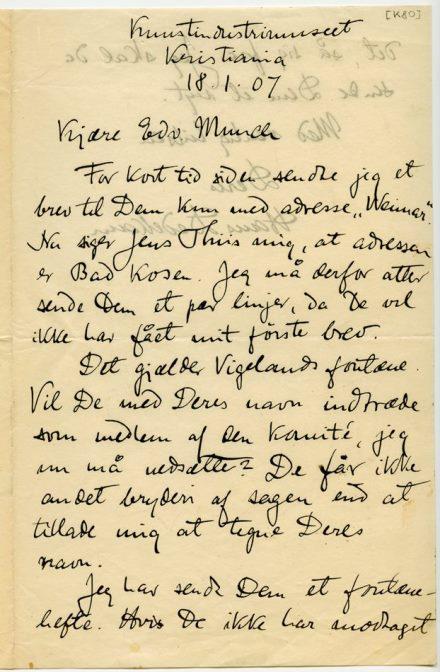 [K80]
Kunstindustrimuseet
Kristiania
18.1.07
Kjære Edv Munch
For kort tid siden sendte jeg et
brev til Dem kun med adresse „Weimar".
Nu siger Jens Thiis mig, at adressen
er Bad Kosen. Jeg må derfor atter
sende Dem et par linjer, da De vel
ikke har fået mit første brev.
Det gjælder Vigelands fontæne.
Vil De med Deres navn indtræde
som medlem af den Komité, jeg
nu må nedsætte? De får ikke
andet bryderi af sagen end at
tillade mig at tegne Deres
navn.
Jeg har sendt Dem et fontæne-
hefte. Hvis De ikke har modtaget